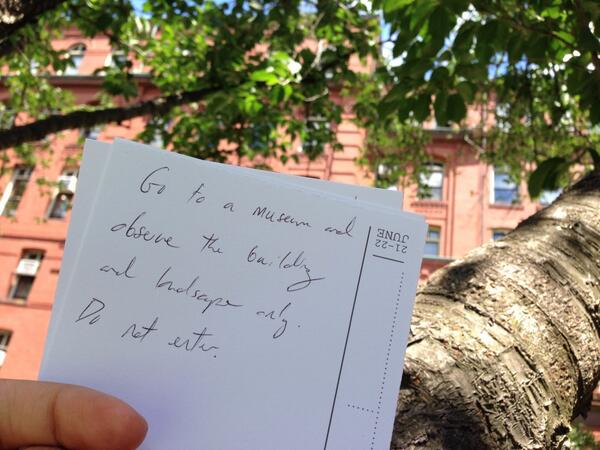 Go to a museum and
observe the building
and landscape only.
Do not enter.
21-22
JUNE